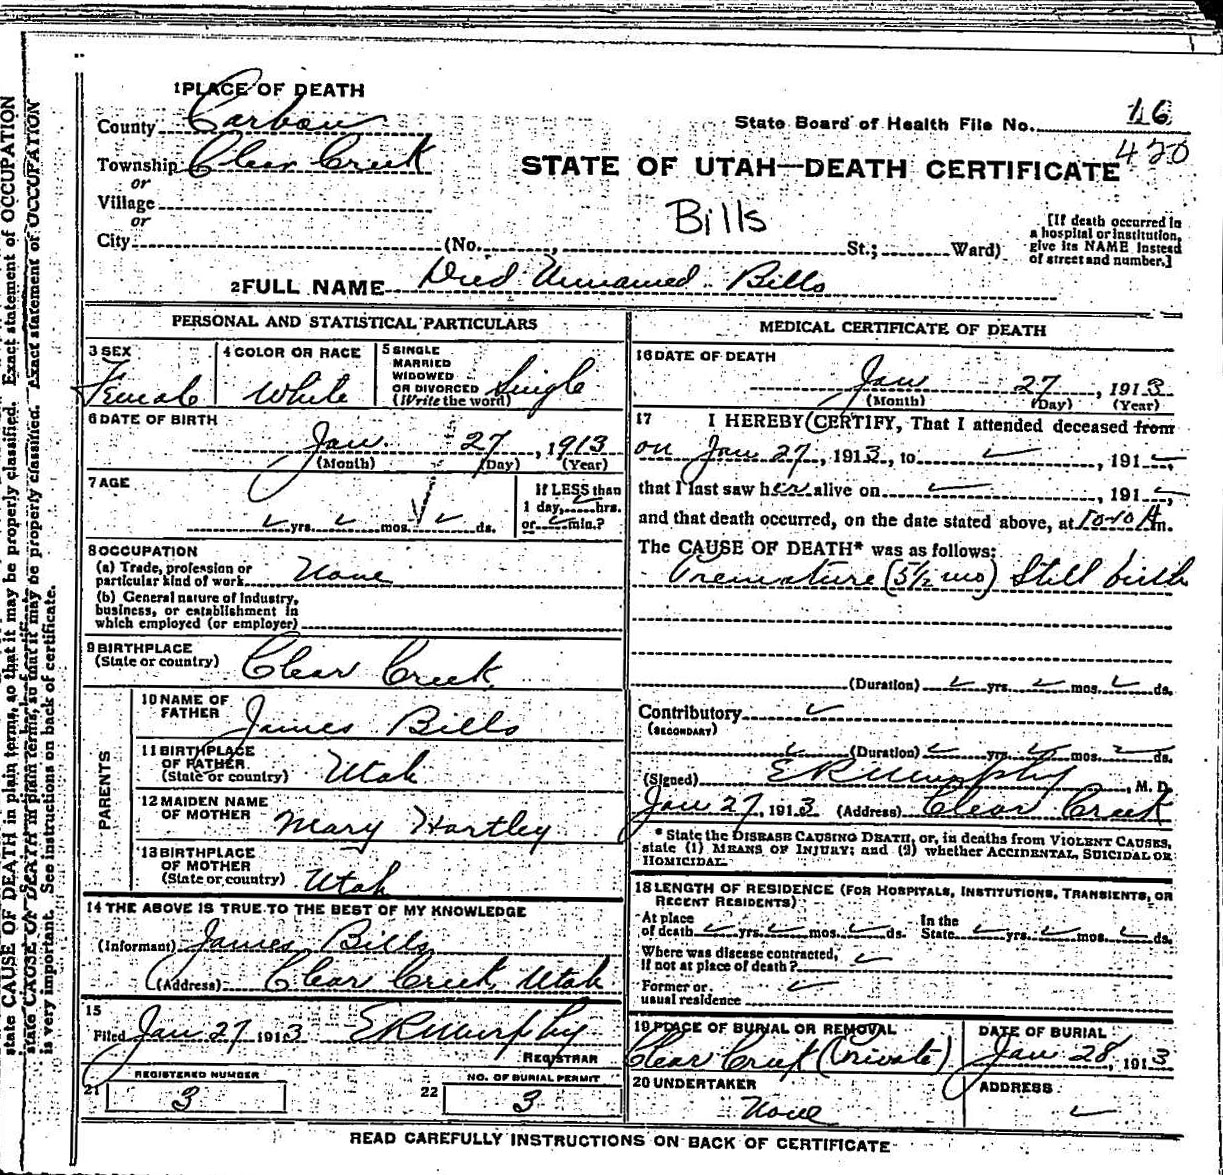 1 PLACE OF DEATH
County Carbon
State Board of Health File No. 16
420
Township Clear Creek
STATE OF UTAH—DEATH CERTIFICATE
or
Village
or
Bills
City (No. , St.; Ward)
[If death occurred in a hospital or institution, give its NAME instead of street and number.]
2 FULL NAME Died Unnamed Bills
PERSONAL AND STATISTICAL PARTICULARS
3 SEX
Female
4 COLOR OR RACE
White
5 SINGLE
MARRIED
WIDOWED
OR DIVORCED
(Write the word) Single
6 DATE OF BIRTH
Jan. 27, 1913
(Month) (Day) (Year)
7 AGE
yrs. mos. ds.
If LESS than
1 day, hrs.
or min.?
8 OCCUPATION
(a) Trade, profession or
particular kind of work None
(b) General nature of Industry,
business, or establishment in
which employed (or employer)
9 BIRTHPLACE
(State or country) Clear Creek
PARENTS
10 NAME OF
FATHER James Bills
11 BIRTHPLACE
OF FATHER
(State or country) Utah
12 MAIDEN NAME
OF MOTHER Mary Hartley
13 BIRTHPLACE
OF MOTHER
(State or country) Utah
14 THE ABOVE IS TRUE TO THE BEST OF MY KNOWLEDGE
(Informant) James Bills
(Address) Clear Creek, Utah
15
Filed Jan 27 1913 E R Murphy
REGISTRAR
REGISTERED NUMBER
21 3
NO. OF BURIAL PERMIT
22 3
MEDICAL CERTIFICATE OF DEATH
16 DATE OF DEATH
Jan 27, 1913
(Month) (Day) (Year)
17 I HEREBY CERTIFY, That I attended deceased from
on Jan 27, 1913, to , 191 ,
that I last saw her alive on , 191 ,
and that death occurred, on the date stated above, at 10-10 A m.
The CAUSE OF DEATH* was as follows:
Premature (5 1/2 mo) Still birth
(Duration) yrs. mos. ds.
Contributory
(SECONDARY)
(Duration) yrs. mos. ds.
(Signed) E R Murphy, M. D.
Jan 27, 1913 (Address) Clear Creek
* State the DISEASE CAUSING DEATH, or, in deaths from VIOLENT CAUSES,
state (1) MEANS OF INJURY; and (2) whether ACCIDENTAL, SUICIDAL OR
HOMICIDAL.
18 LENGTH OF RESIDENCE (FOR HOSPITALS, INSTITUTIONS, TRANSIENTS, OR
RECENT RESIDENTS)
At place
of death yrs. mos. ds.
In the
State yrs. mos. ds.
Where was disease contracted,
if not at place of death?
Former or
usual residence
19 PLACE OF BURIAL OR REMOVAL
Clear Creek (Private)
DATE OF BURIAL
Jan 28, 1913
20 UNDERTAKER
None
ADDRESS
READ CAREFULLY INSTRUCTIONS ON BACK OF CERTIFICATE
state CAUSE OF DEATH in plain terms, so that it may be properly classified. Exact statement of OCCUPATION
state CAUSE OF DEATH in plain terms, so that it may be properly classified. Exact statement of OCCUPATION
is very important. See instructions on back of certificate.